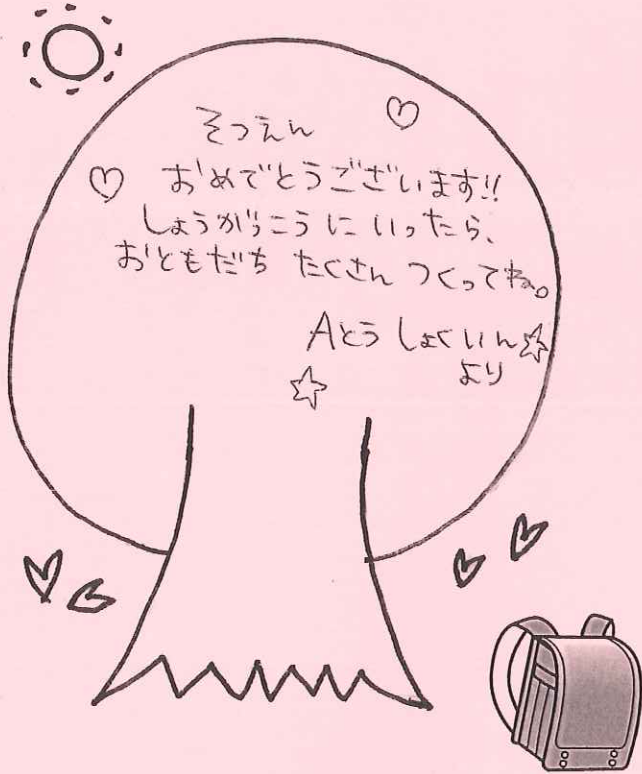 そつえん
おめでとうございます!!
しょうがっこうにいったら、
おともだち たくさん つくってね。
Aとう しょくいん☆
より